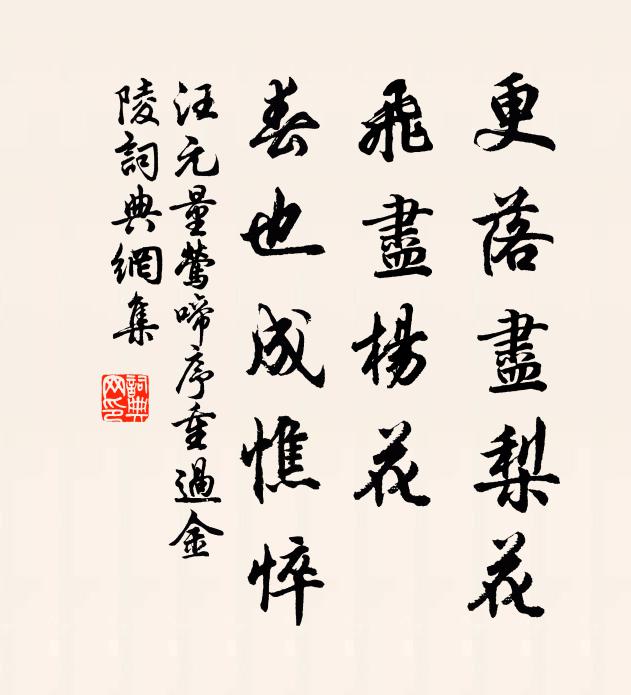 更落盡梨花
飛盡楊花
春也成憔悴
汪元量鶯啼序重過金
陵詞典網集
詞典网印